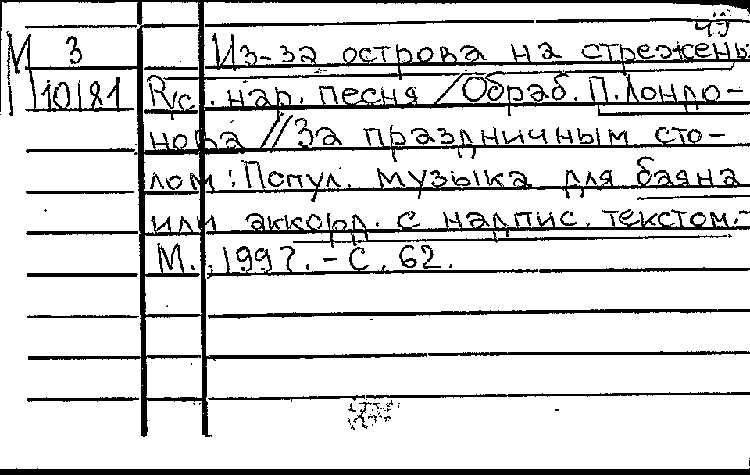 49
М 3 Из-за острова на стрежень
10181 Рус. нар. песня / Обраб. П. Лондо-
нова // За праздничным сто-
лом: Попул. музыка для баяна
или аккорд. с надпис. текстом.-
М., 1997. - С. 62.